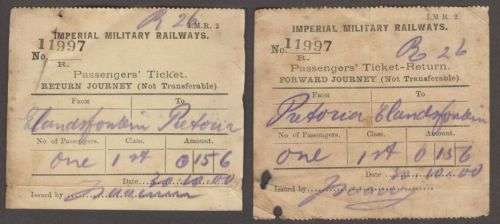 I.M.R. 2
R 26
IMPERIAL MILITARY RAILWAYS.
No. 11997
R.
Passengers' Ticket.
RETURN JOURNEY (Not Transferable)
From To
Elandsfontein Pretoria
No. of Passengers. Class. Amount.
One 1st 0 15 6
Date 30.10.00
Issued by
I.M.R. 2
IMPERIAL MILITARY RAILWAYS.
No. 11997
R 26
R.
Passengers' Ticket-Return.
FORWARD JOURNEY (Not Transferable)
From To
Pretoria Elandsfontein
No. of Passengers. Class. Amount.
One 1st 0 15 6
Date 30.10.00
Issued by